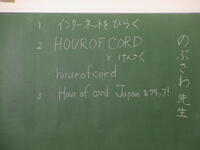 1. インターネットをひらく
2 HOUROFCORD
とけんさく
hourofcord
3 Hour of cord Japanをクリック!
のぶさわ先生